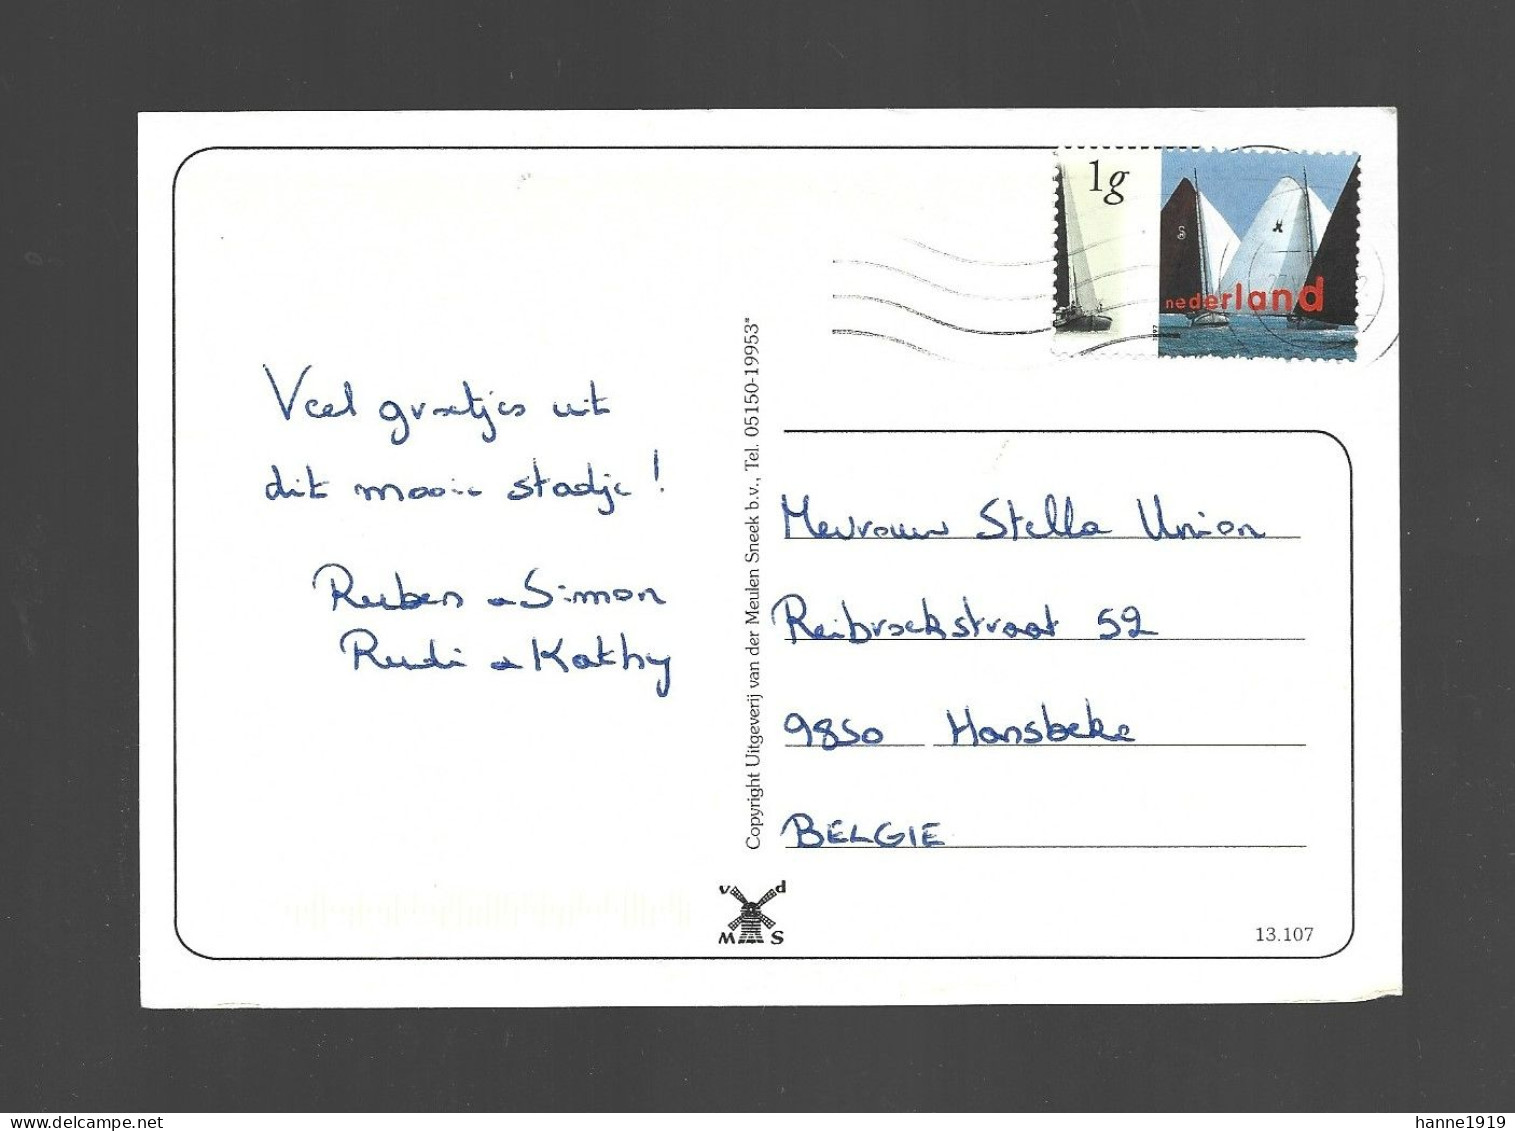 1g
nederland
1997
Veel groetjes uit
dit mooie stadje!
Ruben & Simon
Rudi & Kathy
Copyright Uitgeverij van der Meulen Sneek b.v., Tel. 05150-19953*
Mevrouw Stella Union
Reibroekstraat 52
9850 Hansbeke
BELGIE
v d
M S
13.107
hanne1919